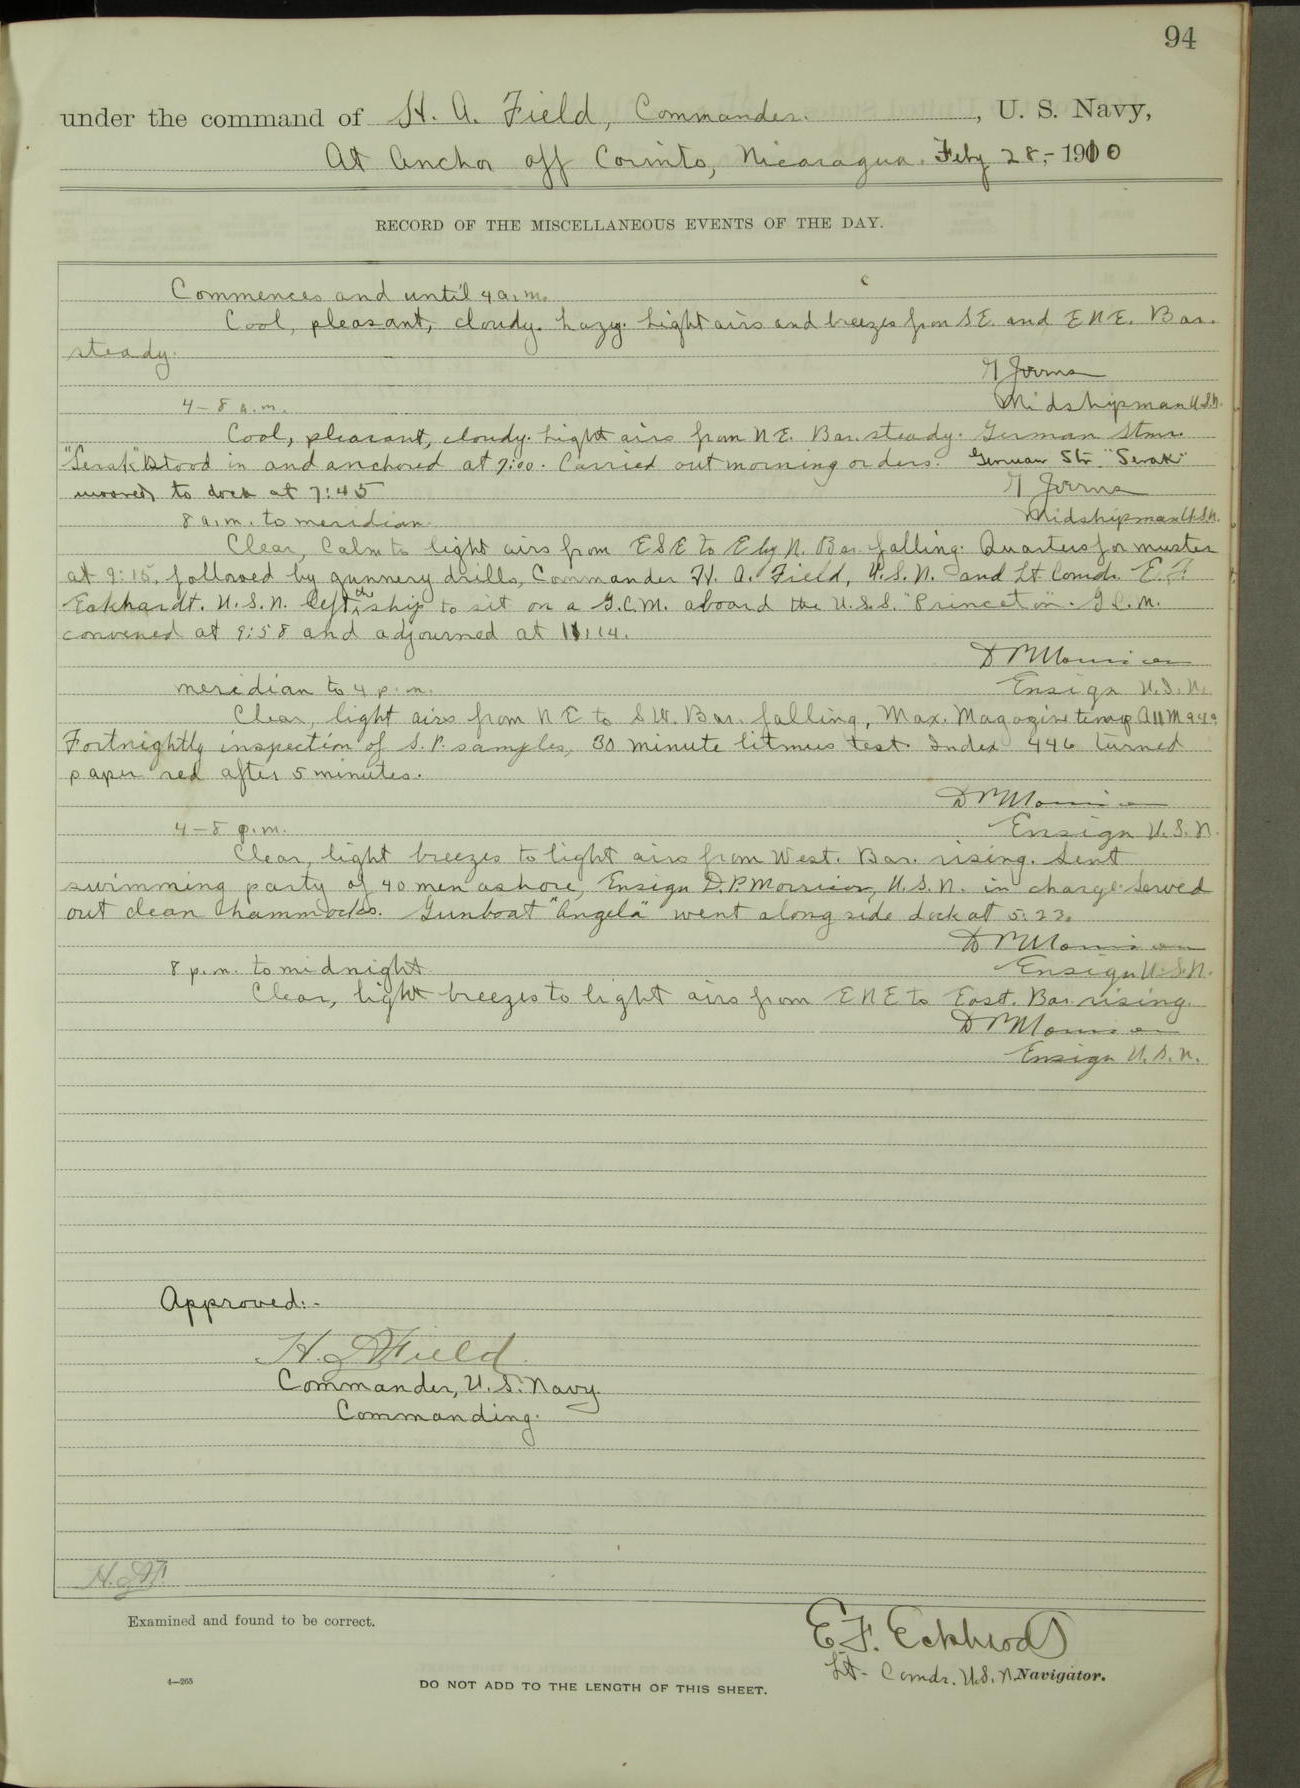 94
under the command of H. A. Field, Commander. , U. S. Navy,
At Anchor off Corinto, Nicaragua. Feby 28,- 1910
RECORD OF THE MISCELLANEOUS EVENTS OF THE DAY.
Commences and until 4 a.m.
Cool, pleasant, cloudy. hazy. Light airs and breezes from SE. and ENE. Bar.
steady.
4-8 a.m.
Midshipman U.S.N.
Cool, pleasant, cloudy. Light airs from NE. Bar. steady. German Stmr.
"Serak" stood in and anchored at 7:00. Carried out morning orders. German Str. "Serak"
moored to dock at 7:45
8 a.m. to meridian.
Midshipman U.S.N.
Clear, Calm to light airs from ESE to E by N. Bar. falling. Quarters for muster
at 9:15, followed by gunnery drills, Commander H. A. Field, U.S.N. and Lt. Comdr. E. F.
Eckhardt. U.S.N. left the ship to sit on a G.C.M. aboard the U.S.S. "Princeton". G.C.M.
convened at 9:58 and adjourned at 11:14.
D P Morrison
meridian to 4 p.m.
Ensign U.S.N.
Clear, light airs from NE to SW. Bar. falling, Max. Magazine temp A11M 94°
Fortnightly inspection of S.P. samples, 30 minute litmus test. Index 446 turned
paper red after 5 minutes.
D P Morrison
4-8 p.m.
Ensign U.S.N.
Clear, light breezes to light airs from West. Bar. rising. Sent
swimming party of 40 men ashore, Ensign D.P. Morrison, U.S.N. in charge. Served
out clean hammocks. Gunboat "Angela" went along side dock at 5:23.
D P Morrison
8 p.m. to midnight.
Ensign U.S.N.
Clear, light breezes to light airs from ENE to East. Bar. rising.
D P Morrison
Ensign U.S.N.
Approved:-
H. A. Field
Commander, U.S. Navy.
Commanding.
H.A.F.
Examined and found to be correct.
E.F. Eckhardt
Lt- Comdr. U.S.N. Navigator.
4—265
DO NOT ADD TO THE LENGTH OF THIS SHEET.